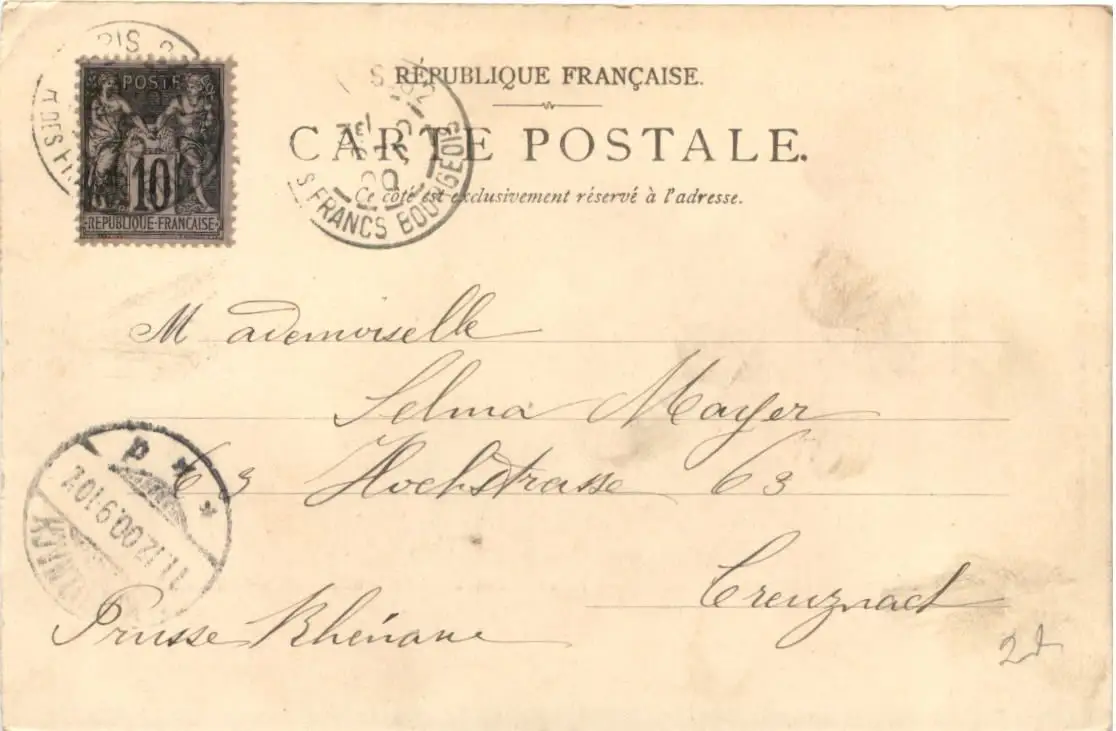 POSTE
10
REPUBLIQUE-FRANÇAISE
RÉPUBLIQUE FRANÇAISE.
CARTE POSTALE.
Ce côté est exclusivement réservé à l'adresse.
S FRANCS BOURGEOIS
Mademoiselle
Selma Mayer
63 Hochstrasse 63
Creuznach
Prusse Rhénane
11.12.00.9-10V